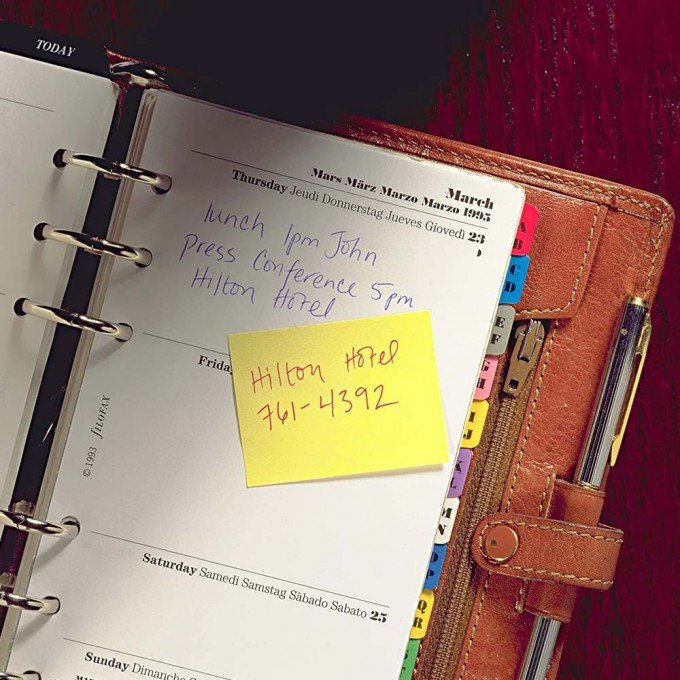 TODAY
March
Mars März Marzo Marzo 1995
Thursday Jeudi Donnerstag Jueves Giovedì 23
lunch 1pm John
Press Conference 5pm
Hilton Hotel
Friday
Hilton Hotel
761-4392
© 1993 FILOFAX
Saturday Samedi Samstag Sàbado Sabato 25
Sunday Dimanche
A
B
C
D
E
F
G
H
I
J
K
L
M
N
O
P
Q
R